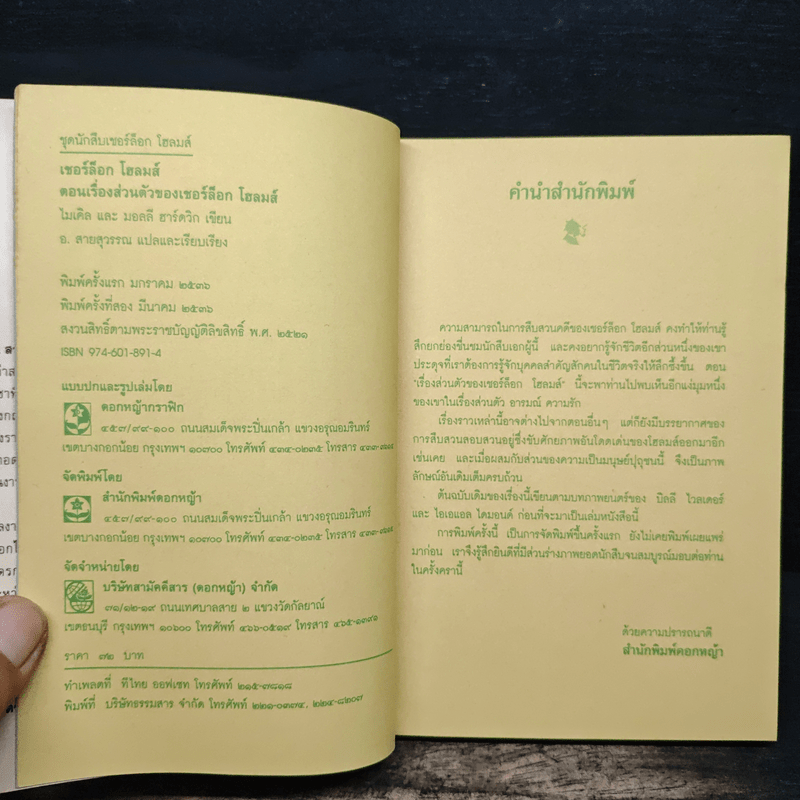 ชุดนักสืบเชอร์ล็อก โฮลมส์
เชอร์ล็อก โฮลมส์
ตอนเรื่องส่วนตัวของเชอร์ล็อก โฮลมส์
ไมเคิล และ มอลลี ฮาร์ดวิก เขียน
อ. สายสุวรรณ แปลและเรียบเรียง
พิมพ์ครั้งแรก มกราคม ๒๕๓๖
พิมพ์ครั้งที่สอง มีนาคม ๒๕๓๖
สงวนสิทธิ์ตามพระราชบัญญัติลิขสิทธิ์ พ.ศ. ๒๕๒๑
ISBN 974-601-891-4
แบบปกและรูปเล่มโดย
ดอกหญ้ากราฟิก
๔๕๓/๙๙-๑๐๐ ถนนสมเด็จพระปิ่นเกล้า แขวงอรุณอมรินทร์
เขตบางกอกน้อย กรุงเทพฯ ๑๐๗๐๐ โทรศัพท์ ๔๓๔-๐๒๓๕ โทรสาร
จัดพิมพ์โดย
สำนักพิมพ์ดอกหญ้า
๔๕๓/๙๙-๑๐๐ ถนนสมเด็จพระปิ่นเกล้า แขวงอรุณอมรินทร์
เขตบางกอกน้อย กรุงเทพฯ ๑๐๗๐๐ โทรศัพท์ ๔๓๔-๐๒๓๕ โทรสาร
จัดจำหน่ายโดย
บริษัทสามัคคีสาร (ดอกหญ้า) จำกัด
๓๑/๑๒-๑๙ ถนนเทศบาลสาย ๒ แขวงวัดกัลยาณ์
เขตธนบุรี กรุงเทพฯ ๑๐๖๐๐ โทรศัพท์ ๔๖๖-๐๕๑๙ โทรสาร ๔๖๕-๑๓๙๖
ราคา ๗๒ บาท
ทำเพลตที่ ทีไทย ออฟเซท โทรศัพท์ ๒๑๕-๗๘๑๘
พิมพ์ที่ บริษัทธรรมสาร จำกัด โทรศัพท์ ๒๒๑-๐๓๗๔, ๒๒๔-๘๒๐๗
คำนำสำนักพิมพ์
ความสามารถในการสืบสวนคดีของเชอร์ล็อก โฮลมส์ คงทำให้ท่านรู้
สึกยกย่องชื่นชมนักสืบเอกผู้นี้ และคงอยากรู้จักชีวิตอีกส่วนหนึ่งของเขา
ประดุจที่เราต้องการรู้จักบุคคลสำคัญสักคนในชีวิตจริงให้ลึกซึ้งขึ้น ตอน
"เรื่องส่วนตัวของเชอร์ล็อก โฮลมส์" นี้จะพาท่านไปพบเห็นอีกแง่มุมหนึ่ง
ของเขาในเรื่องส่วนตัว อารมณ์ ความรัก
เรื่องราวเหล่านี้อาจต่างไปจากตอนอื่นๆ แต่ก็ยังมีบรรยากาศของ
การสืบสวนสอบสวนอยู่ซึ่งขับศักยภาพอันโดดเด่นของโฮลมส์ออกมาอีก
เช่นเคย และเมื่อผสมกับส่วนของความเป็นมนุษย์ปุถุชนนี้ จึงเป็นภาพ
ลักษณ์อันเติมเต็มครบถ้วน
ต้นฉบับเดิมของเรื่องนี้เขียนตามบทภาพยนตร์ของ บิลลี ไวลเดอร์
และ ไอเอแอล ไดมอนด์ ก่อนที่จะมาเป็นเล่มหนังสือนี้
การพิมพ์ครั้งนี้ เป็นการจัดพิมพ์ขึ้นครั้งแรก ยังไม่เคยพิมพ์เผยแพร่
มาก่อน เราจึงรู้สึกยินดีที่มีส่วนร่างภาพยอดนักสืบจนสมบูรณ์มอบต่อท่าน
ในครั้งครานี้
ด้วยความปรารถนาดี
สำนักพิมพ์ดอกหญ้า